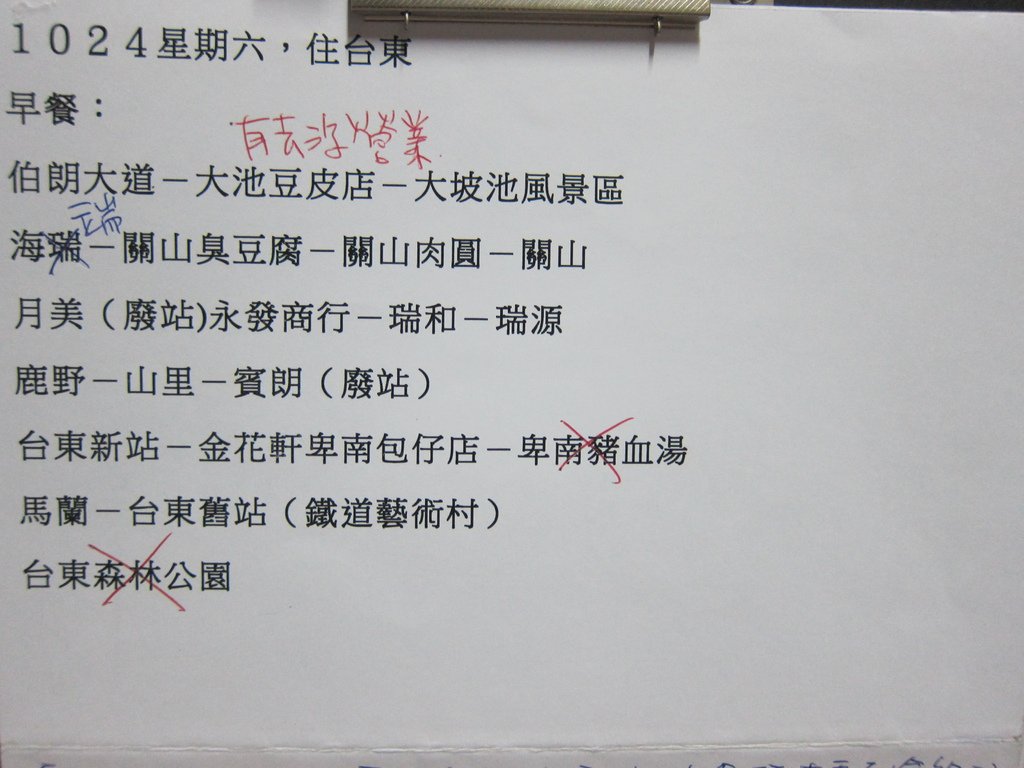 1024星期六，住台東
早餐：
有去沒營業
伯朗大道－大池豆皮店－大坡池風景區
端
海瑞－關山臭豆腐－關山肉圓－關山
月美（廢站)永發商行－瑞和－瑞源
鹿野－山里－賓朗（廢站）
台東新站－金花軒卑南包仔店－卑南豬血湯
馬蘭－台東舊站（鐵道藝術村）
台東森林公園